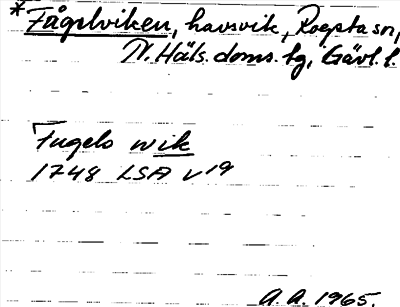 *Fågelviken, havsvik, Rogsta sn,
N. Häls. doms. lg, Gävl. l.
Fugels wik
1748 LSA V19
A. A. 1965.